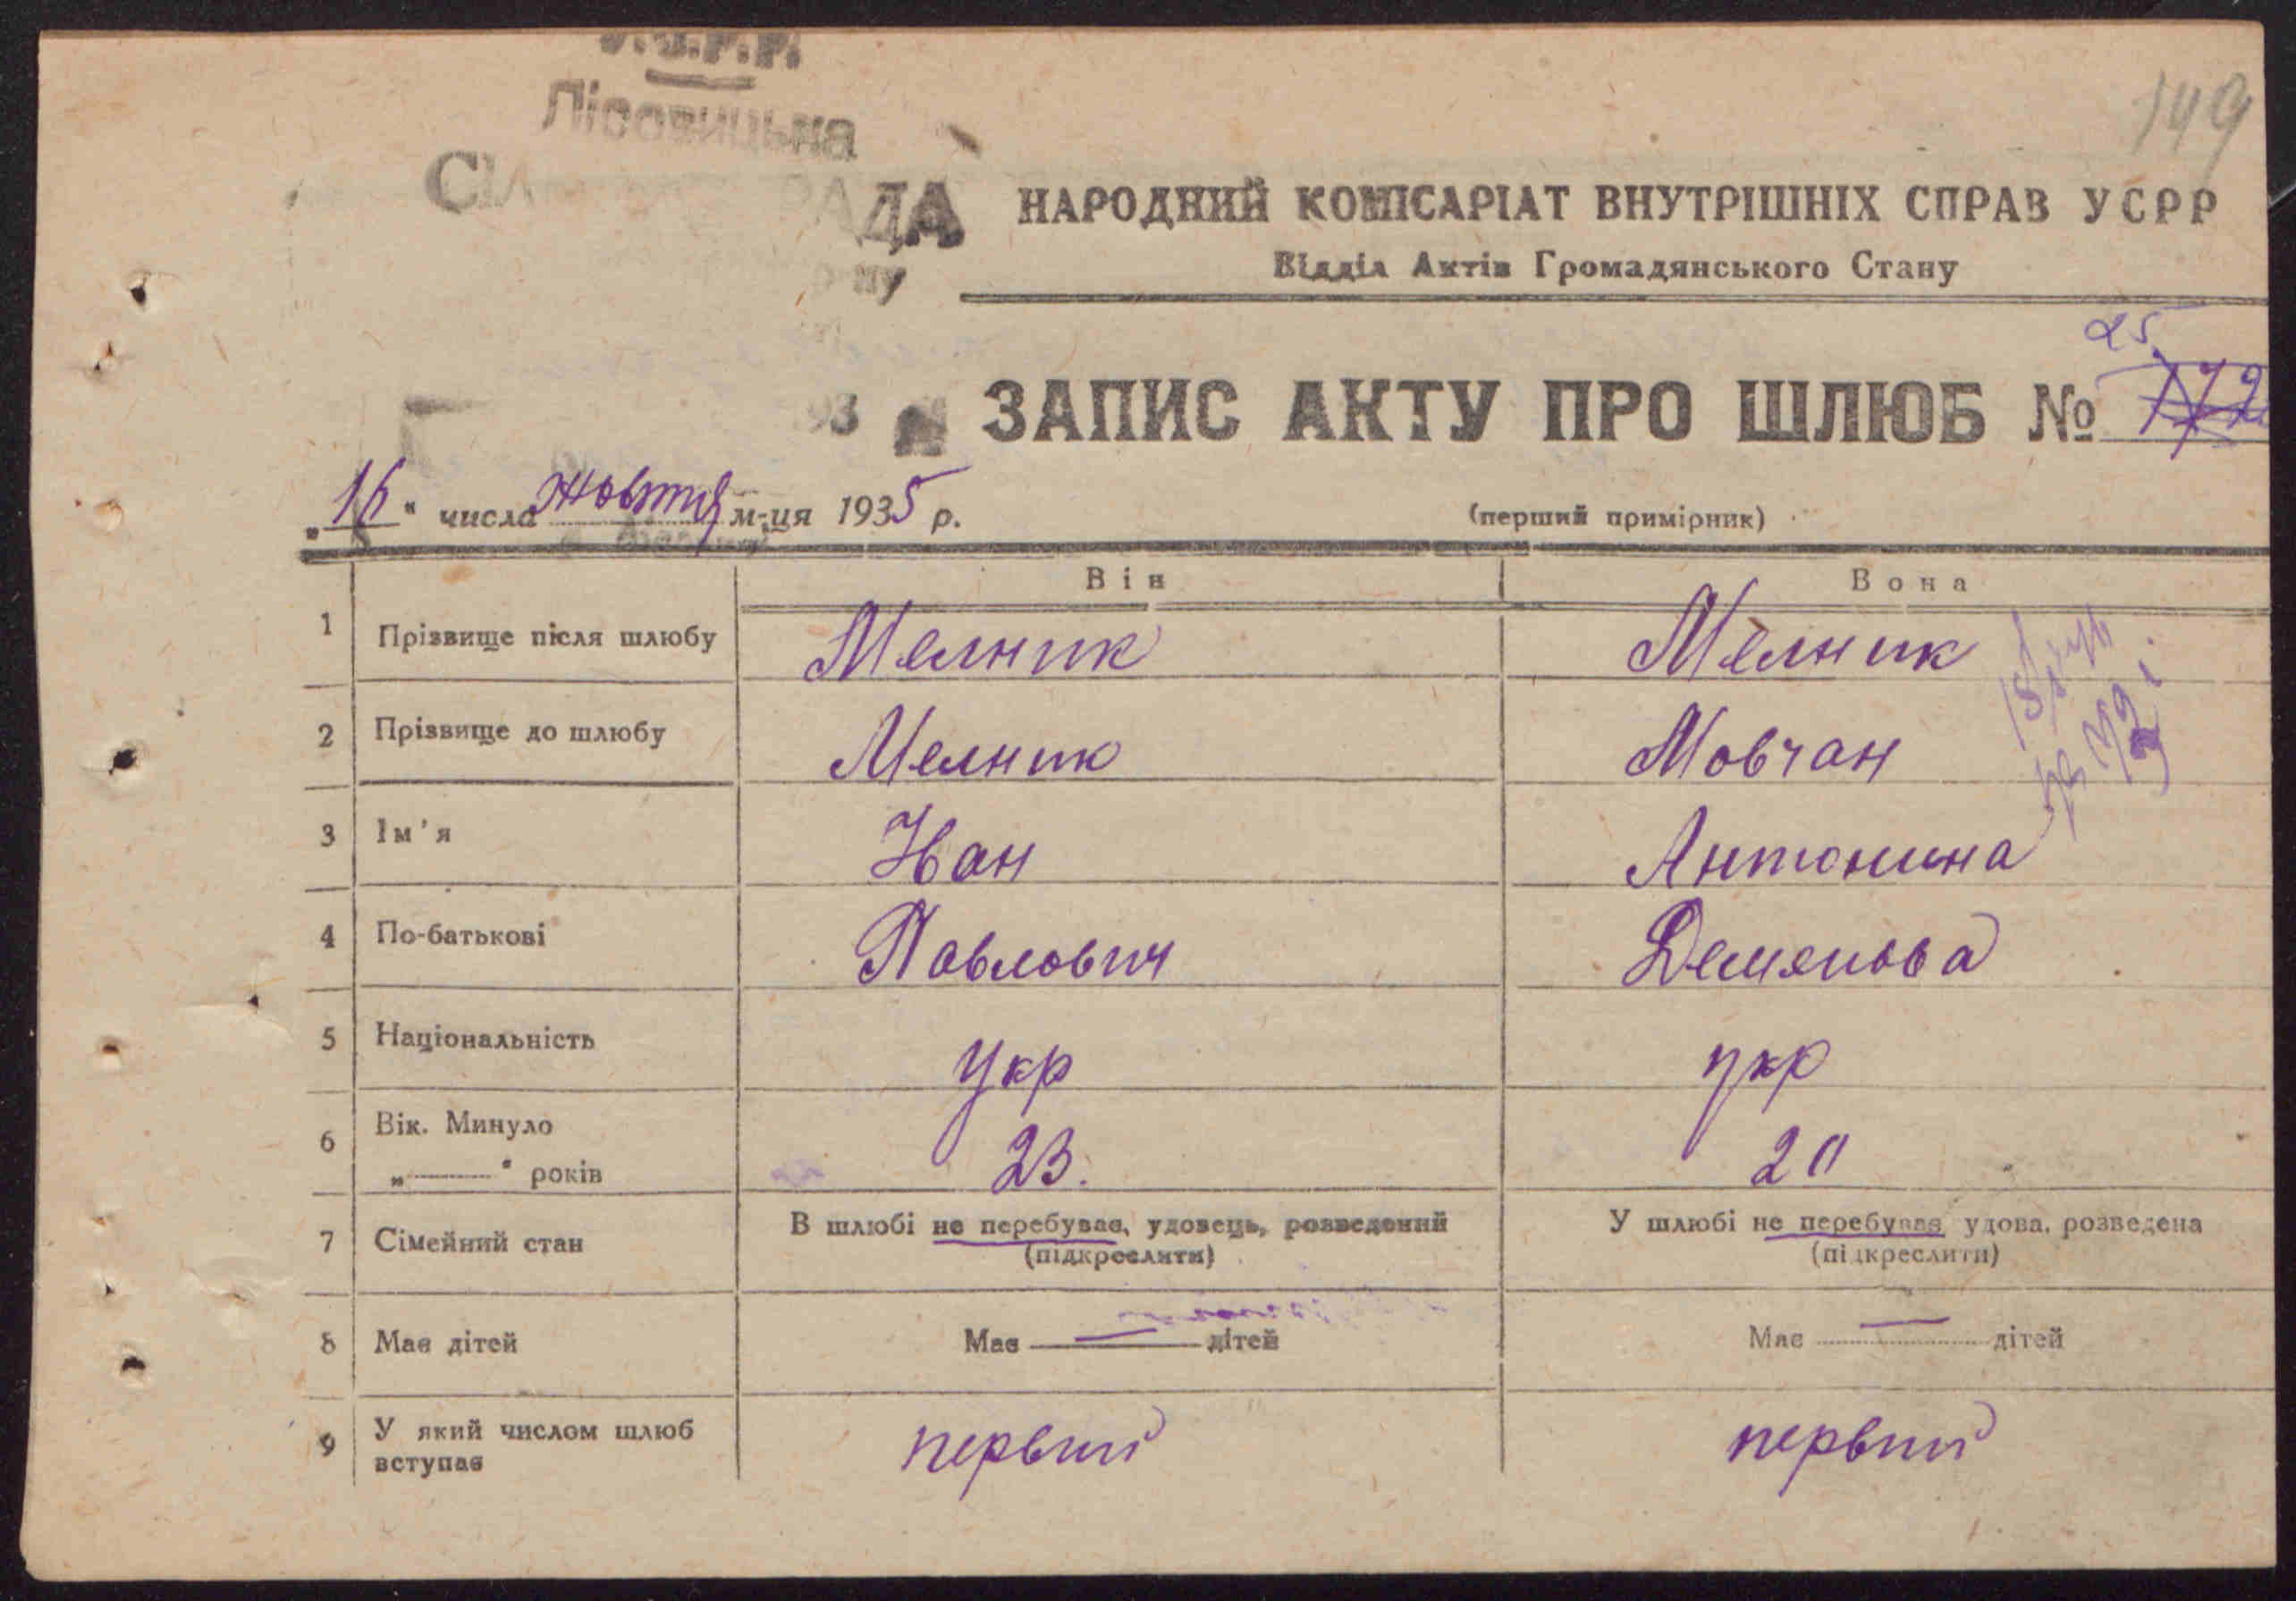 У.С.Р.Р.
Лісовицька
РАДА
149
НАРОДНИЙ КОМІСАРІАТ ВНУТРІШНІХ СПРАВ УСРР
Відділ Актів Громадянського Стану
25
ЗАПИС АКТУ ПРО ШЛЮБ № 172
„16" числа жовтня м-ця 1935 р.
(перший примірник)
Він Вона
1 Прізвище після шлюбу Мелник Мелник
2 Прізвище до шлюбу Мелник Мовчан
3 Ім'я Иван Антонина
4 По-батькові Павлович Демянова
5 Національність Укр укр
6 Вік. Минуло
„——" років 23. 20
7 Сімейний стан В шлюбі не перебуває, удовець, розведений У шлюбі не перебуває, удова, розведена
(підкреслити) (підкреслити)
8 Має дітей Має — дітей Має — дітей
9 У який числом шлюб вступає первий первий